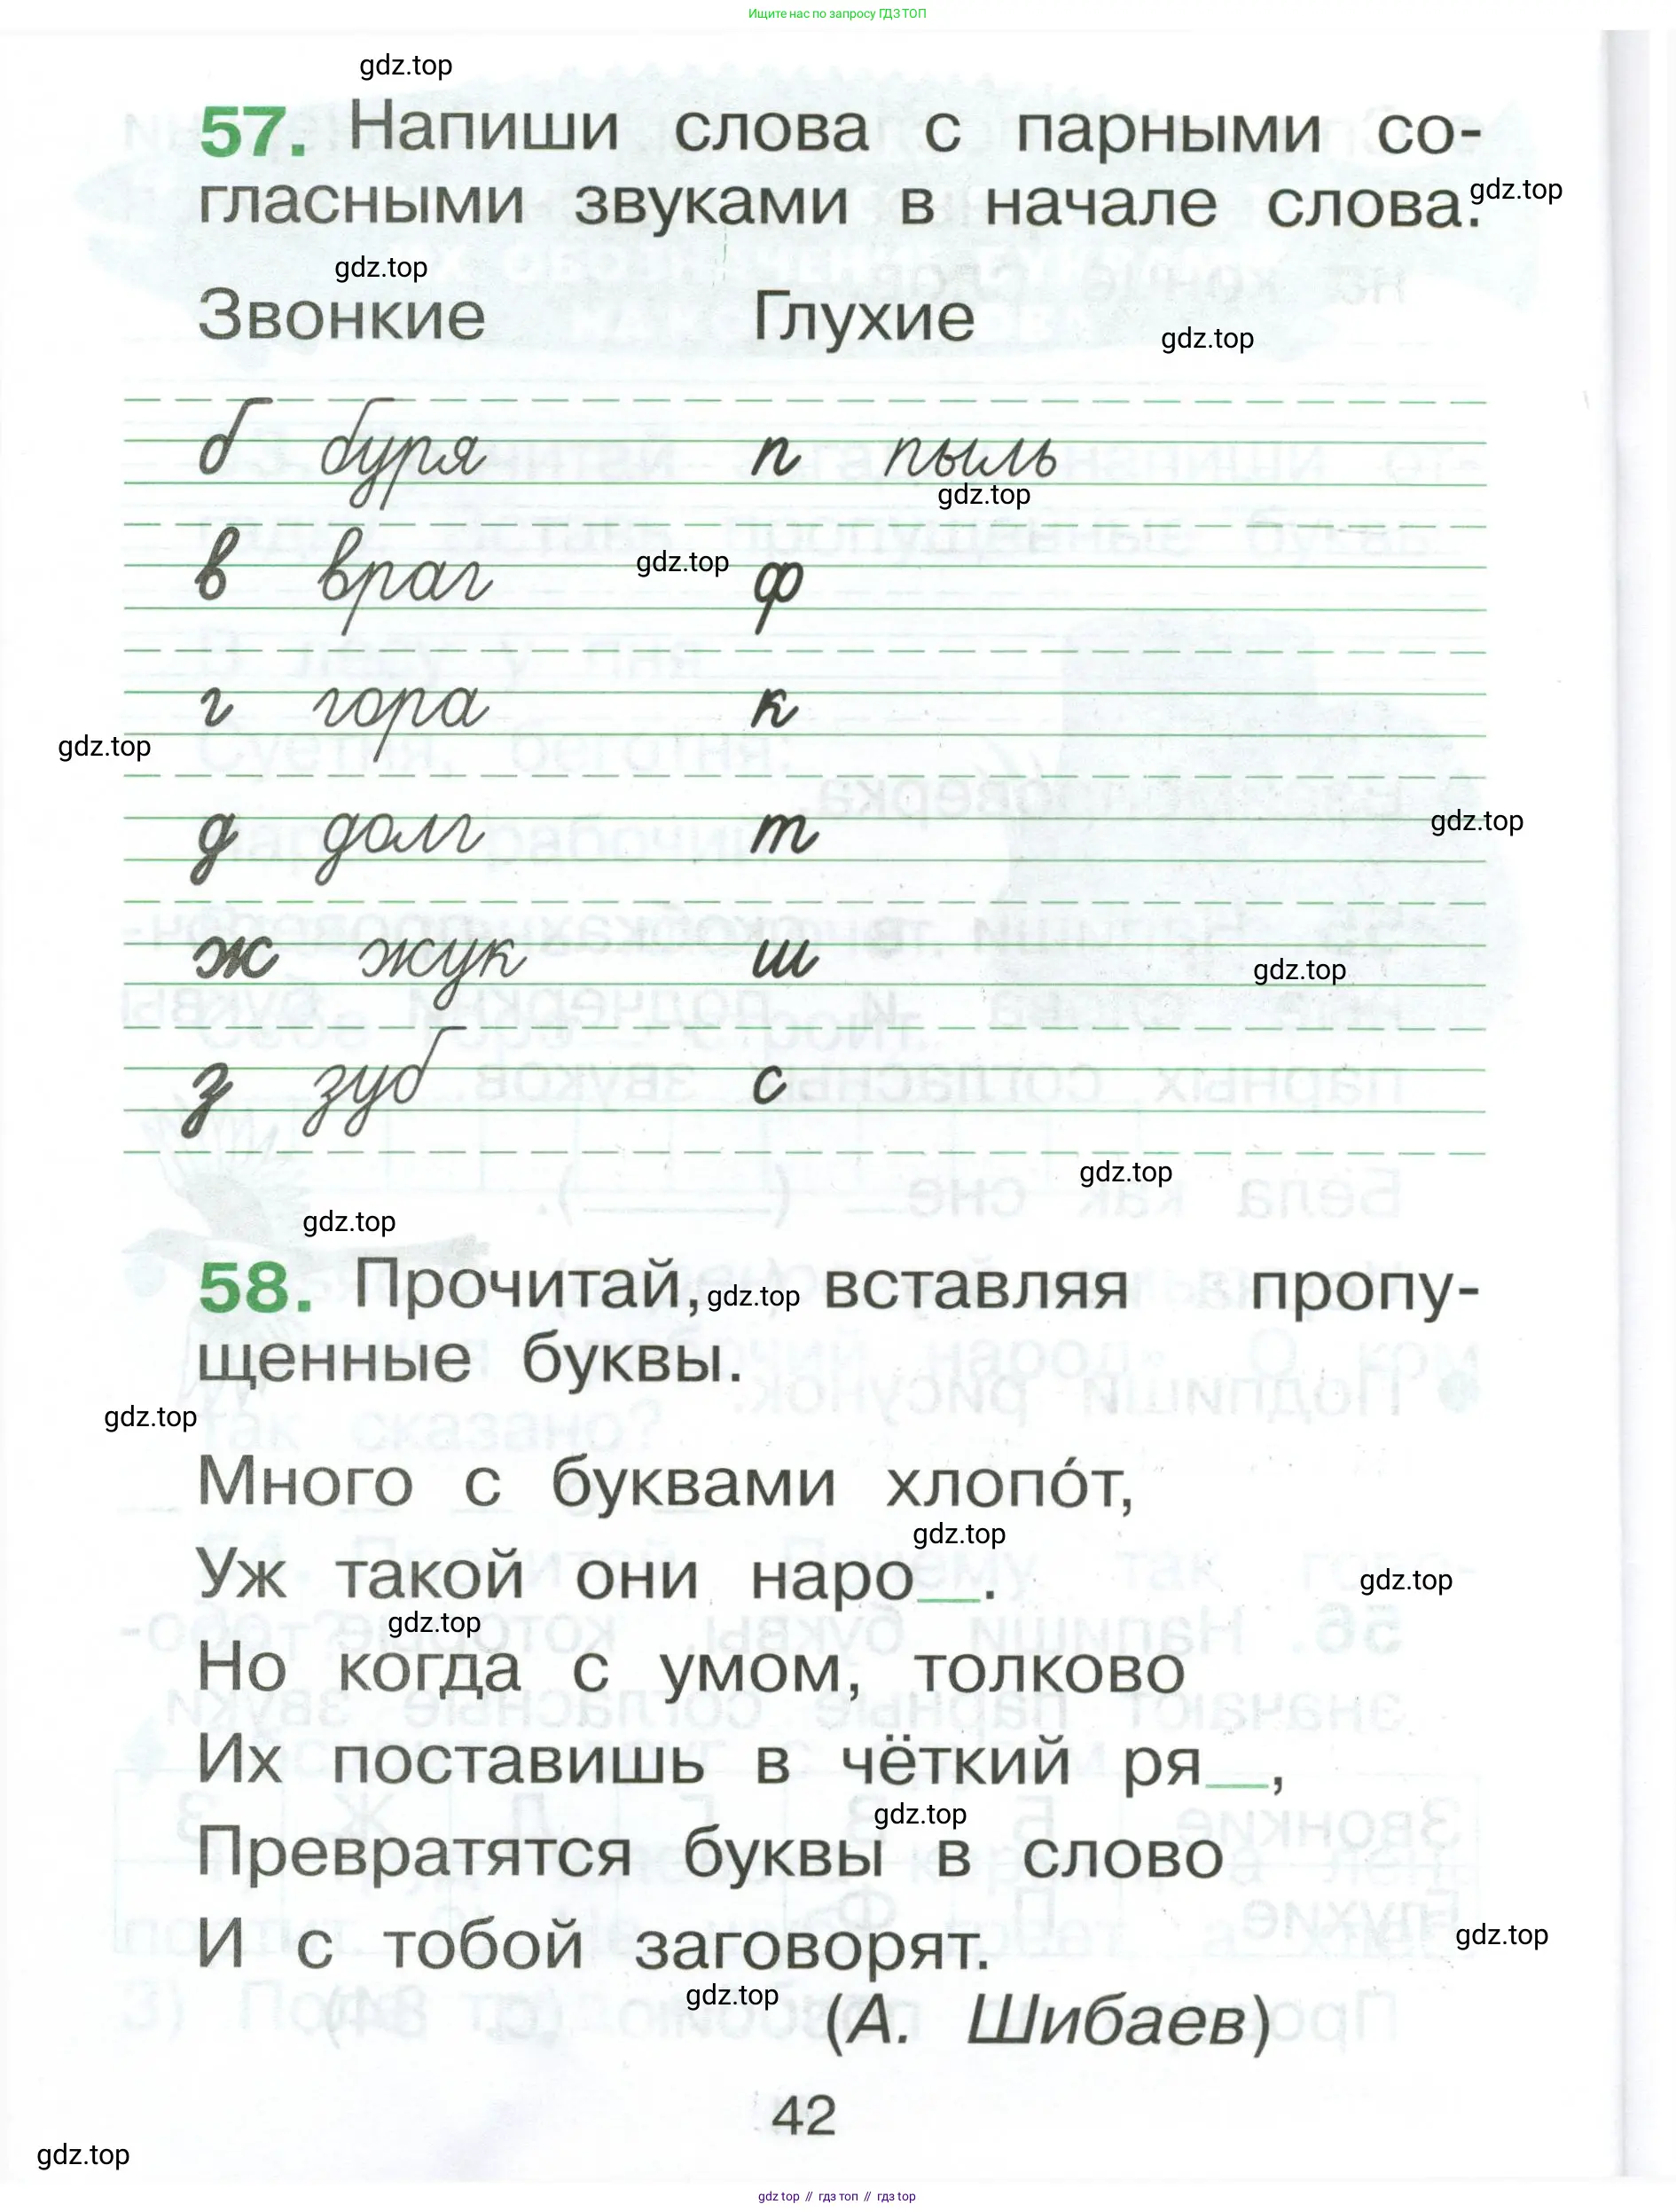 Ищите нас по запросу ГДЗ ТОП
gdz.top
57. Напиши слова с парными со-
гласными звуками в начале слова.
gdz.top
gdz.top
Звонкие Глухие
gdz.top
б буря п пыль
gdz.top
в враг gdz.top ф
г гора к
gdz.top
д долг т
gdz.top
ж жук ш
gdz.top
з зуб с
gdz.top
gdz.top
58. Прочитай, gdz.top вставляя пропу-
щенные буквы.
gdz.top
Много с буквами хлопо́т,
gdz.top
Уж такой они наро__.
gdz.top
gdz.top
Но когда с умом, толково
Их поставишь в чёткий ря__,
gdz.top
Превратятся буквы в слово
И с тобой заговорят.
gdz.top
gdz.top
(А. Шибаев)
42
gdz.top
gdz top // гдз топ // гдз top